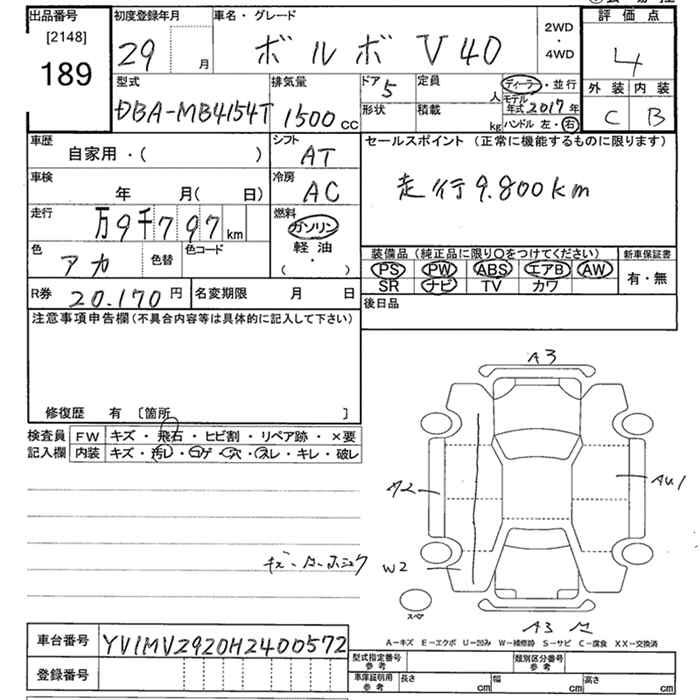 出品番号 初度登録年月 車名・グレード 評価点
[2148]
189 29 月 ボルボ V40 2WD・4WD 4
外装 内装
C B
型式 排気量 ドア 定員 ディーラー・並行
DBA-MB4154T 1500cc 5 人 モデル年式 2017年
形状 積載 kg ハンドル 左・右
車歴 シフト セールスポイント (正常に機能するものに限ります)
自家用・( ) AT
車検 冷房 走行9.800km
年 月(日) AC
走行 燃料
万9千797km ガソリン
軽油
( ・ )
色 アカ 色替 色コード
装備品 (純正品に限り○をつけてください) 新車保証書
PS PW ABS エアB AW 有・無
SR ナビ TV カワ
R券 20.170円 名変期限 月 日
後日品
注意事項申告欄(不具合内容等は具体的に記入して下さい)
修復歴 有 [箇所 ]
検査員 FW キズ・飛石・ヒビ割・リペア跡・×要
記入欄 内装 キズ・汚レ・コゲ・穴・スレ・キレ・破レ
A3
A2
AU1
W2
スペア
A3
A-キズ E-エクボ U-凹み W-補修跡 S-サビ C-腐食 XX-交換済
車台番号 YV1MVZ920H2400572
登録番号
型式指定番号 参考 類別区分番号 参考
車庫証明用 参考 長さ cm 幅 cm 高さ cm